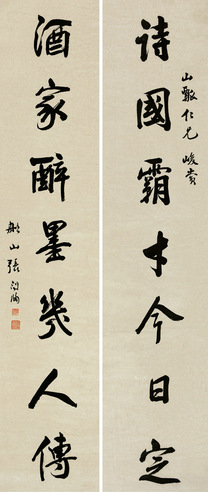 詩國霸才今日定
山瓢仁兄峻賞
酒家醉墨幾人傳
船山張問陶